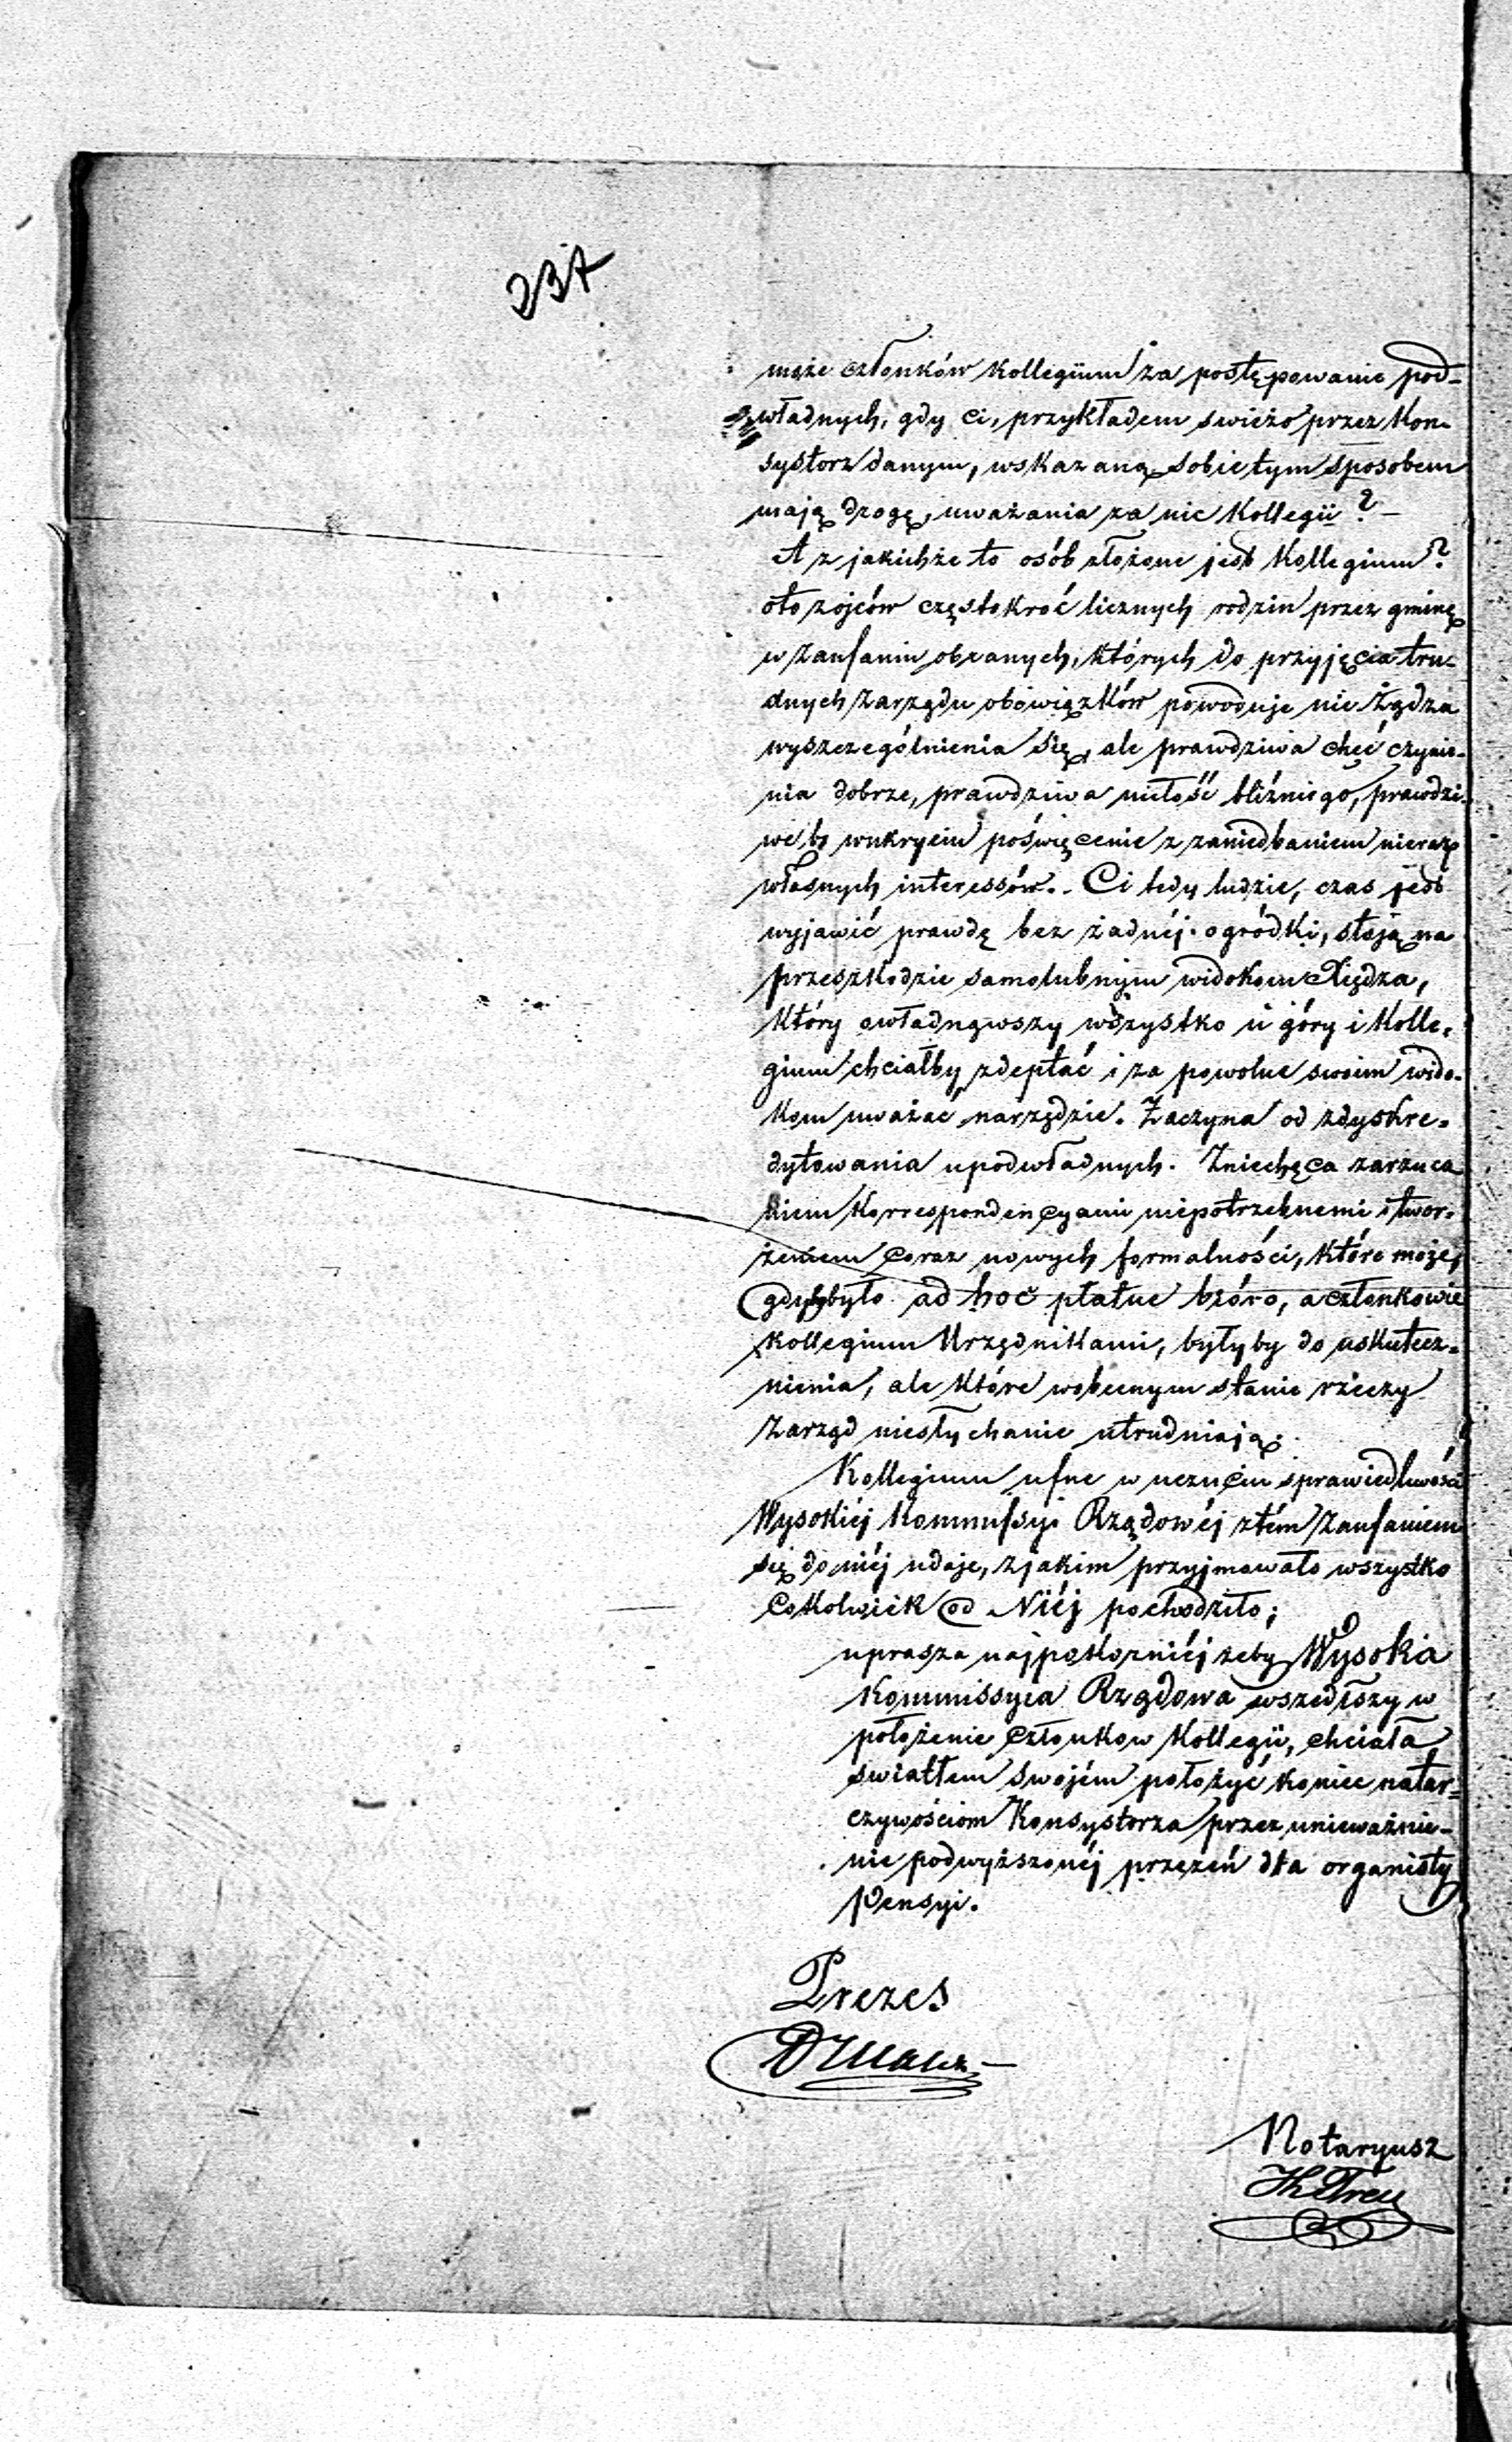 237
może członków kollegium za postępowanie pod-
władnych, gdy ci, przykładem swieżo przez Kon-
systorz danym, wskazaną sobie tym sposobem
mają drogę, uważania za nic Kollegii? –
A z jakichże to osób złożone jest Kollegium?
oto z ojców częstokroć licznych rodzin przez gminę
w zaufaniu obranych, których do przyjęcia tru-
dnych zarządu obowiązków powoduje nie żądza
wyszczególnienia się, ale prawdziwa chęć czynie-
nia dobrze, prawdziwa miłość bliźniego, prawdzi-
we bo w ukryciu poświęcenie z zaniedbaniem nieraz
własnych interessów. Ci tedy ludzie, czas jest
wyjawić prawdę bez żadnéj ogródki, stoją na
przeszkodzie samolubnym widokom Xiędza,
który owładnąwszy wszystko u góry i Kolle-
gium chciałby zdeptać i za powolne swoim wido-
kom uważać narzędzie. Zaczyna od zdyskre-
dytowania u podwładnych. Zniechęca zarzuca
niem korrespondencyami niepotrzebnemi i twor-
zeniem coraz nowych formalności, które może,
gdyby było ad hoc płatne bióro, a członkowie
kollegium Urzędnikami, byłyby do uskutecz-
nienia, ale które w obecnym stanie rzeczy
Zarząd niesłychanie utrudniają.
Kollegium ufne w uczuciu sprawiedliwości
Wysokiéj Kommissyi Rządowéj z tém zaufaniem
się do niéj udaje, z jakim przyjmowało wszystko
cokolwiek od Niéj pochodziło;
uprasza najpokorniéj żeby Wysoka
Kommissyia Rządowa wszedłszy w
położenie członkow Kollegii, chciała
swiatłem swojém położyć koniec natar-
czywościom Konsystorza przez unieważnie-
nie podwyższonéj przezeń dla organisty
Pensyi.
Prezes
Notaryusz